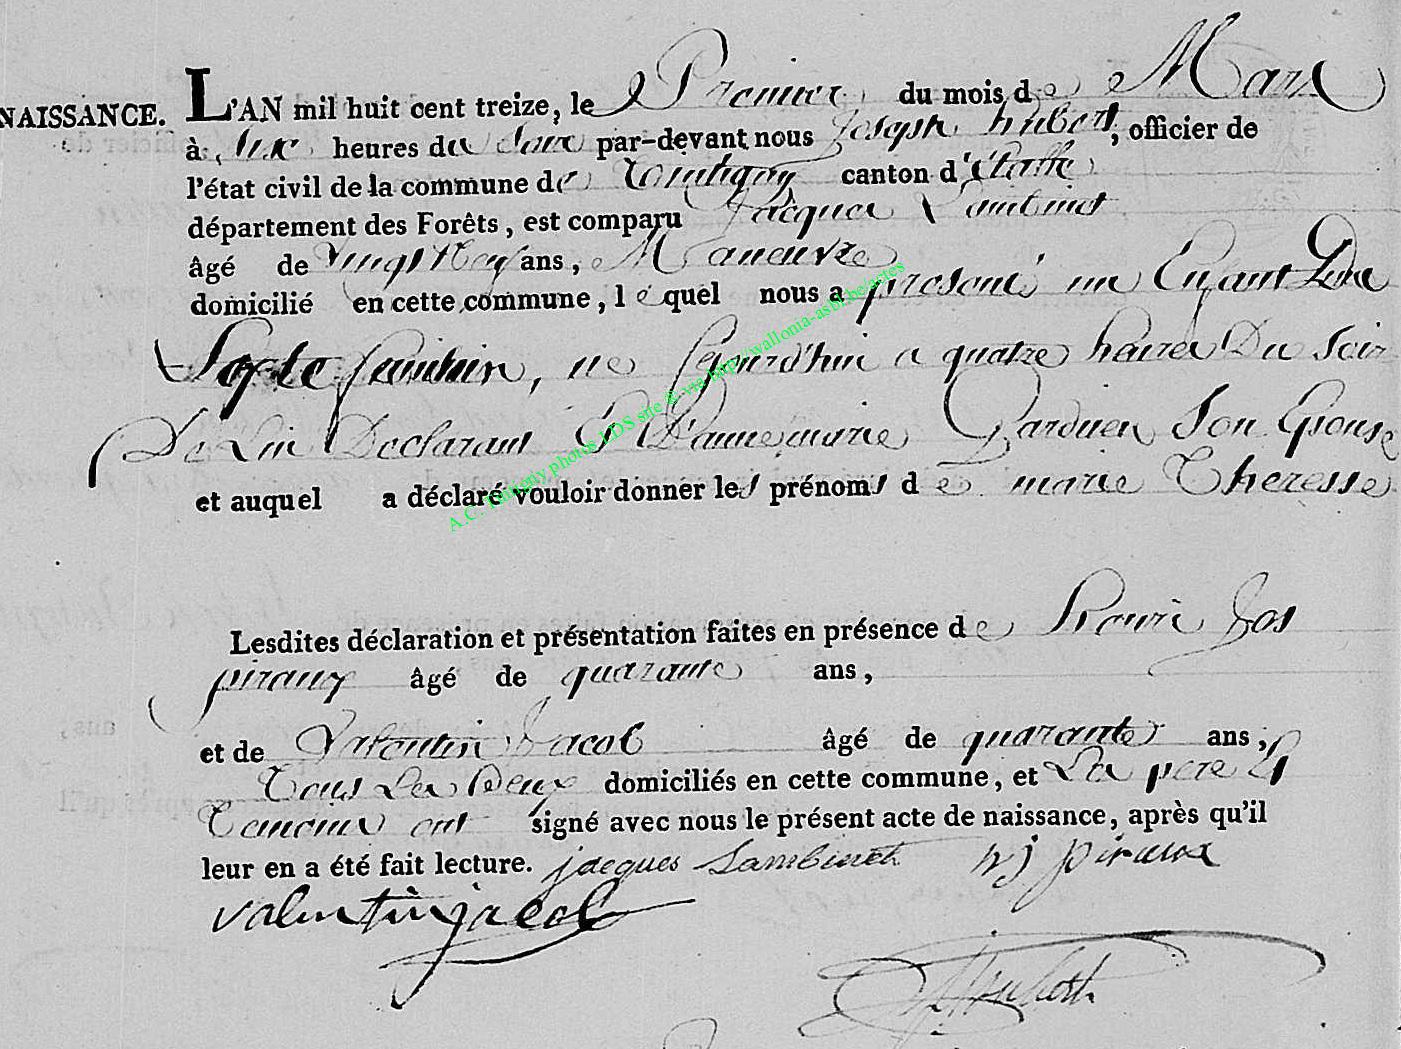 NAISSANCE. L'AN mil huit cent treize, le Premier du mois de Mars
à Six heures du Soir par-devant nous Joseph hubert, officier de
l'état civil de la commune de Tintigny canton d'Etalle
département des Forêts, est comparu Jacques Lambinet
âgé de Vingt Neuf ans, Maneuvre
domicilié en cette commune, lequel nous a presenté un Enfant Du
Sexe feminin, né Cejourd'hui a quatre heures Du Soir
De Lui Declarant Et D'annemarie Son Epouse
et auquel a déclaré vouloir donner les prénoms de marie Theresse
Lesdites déclaration et présentation faites en présence de Henri Jos
piraux âgé de quarante ans,
et de Valentin Jacob âgé de quarante ans,
Tous Les Deux domiciliés en cette commune, et Les pere Et
Temoins ont signé avec nous le présent acte de naissance, après qu'il
leur en a été fait lecture. jacques Lambinet hj piraux
valentin jacob
Hubert
A.C. Tintigny photos LDS site © via http://wallonia-asbl.be/actes